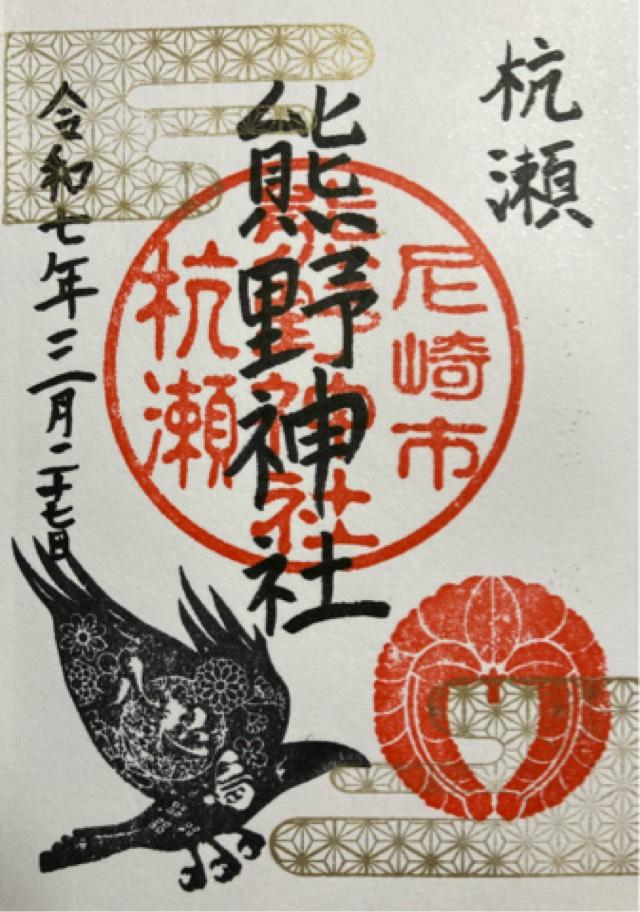 杭瀬
熊野神社
令和七年三月二十七日
尼崎市
熊野神社
杭瀬